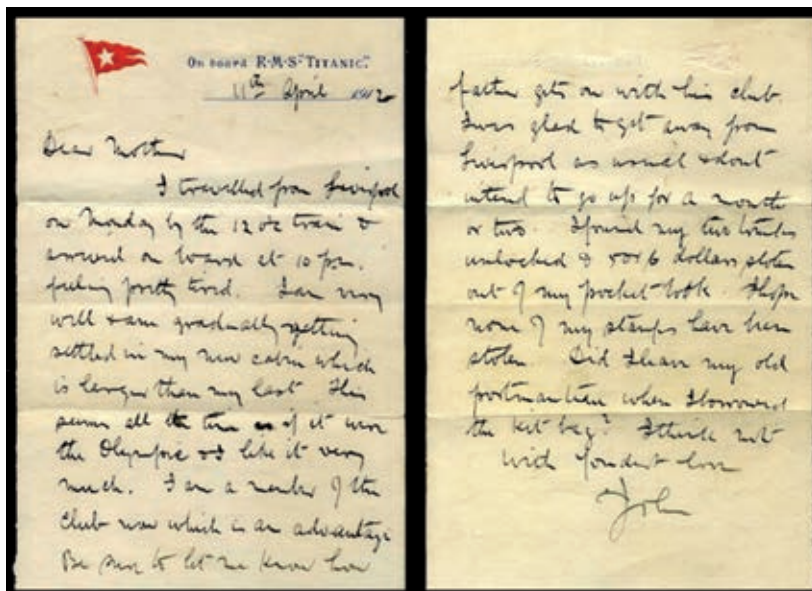 On board R.M.S. "TITANIC."
11th April 1912
Dear Mother
I travelled from Liverpool
on Monday by the 12 o'c train &
arrived on board at 10 p.m.
feeling pretty tired. I am very
well & am gradually getting
settled in my new cabin which
is larger than my last. This
seems all the time as if it were
the Olympic & I like it very
much. I am a member of the
Club now which is an advantage
Be sure to let me know how
father gets on with his club.
I was glad to get away from
Liverpool as usual & dont
intend to go up for a month
or two. I found my two trunks
unlocked & 5 or 6 dollars stolen
out of my pocket book. I hope
none of my stamps have been
stolen. Did I leave my old
portmanteau when I borrowed
the kit bag? I think not
With fondest love
John